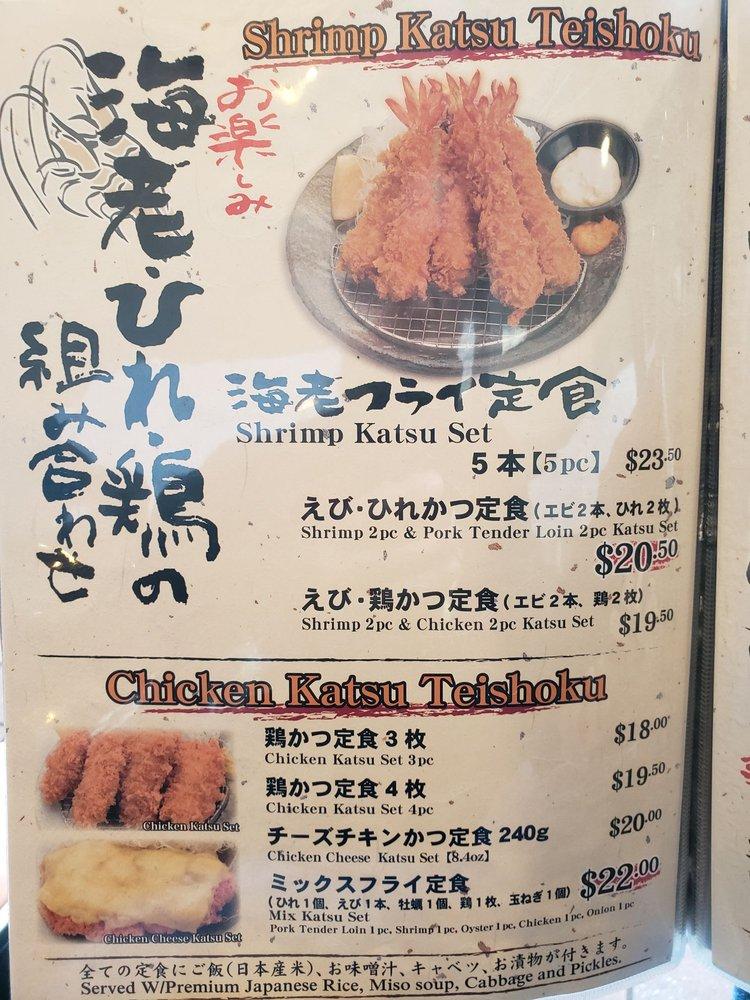 Shrimp Katsu Teishoku
お楽しみ
海老・ひれ・鶏の
組み合わせ
海老フライ定食
Shrimp Katsu Set
5本【5pc】 $23.50
えび・ひれかつ定食(エビ2本、ひれ2枚)
Shrimp 2pc & Pork Tender Loin 2pc Katsu Set
$20.50
えび・鶏かつ定食(エビ2本、鶏2枚)
Shrimp 2pc & Chicken 2pc Katsu Set $19.50
Chicken Katsu Teishoku
鶏かつ定食3枚 $18.00
Chicken Katsu Set 3pc
鶏かつ定食4枚 $19.50
Chicken Katsu Set 4pc
Chicken Katsu Set
チーズチキンかつ定食 240g $20.00
Chicken Cheese Katsu Set【8.4oz】
ミックスフライ定食 $22.00
(ひれ1個、えび1本、牡蠣1個、鶏1枚、玉ねぎ1個)
Mix Katsu Set
Pork Tender Loin 1pc, Shrimp 1pc, Oyster 1pc, Chicken 1pc, Onion 1pc
Chicken Cheese Katsu Set
全ての定食にご飯(日本産米)、お味噌汁、キャベツ、お漬物が付きます。
Served W/Premium Japanese Rice, Miso soup, Cabbage and Pickles.